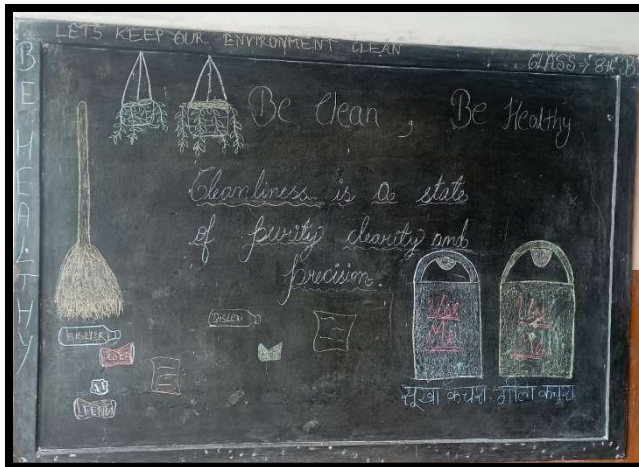 LET'S KEEP OUR ENVIRONMENT CLEAN
CLASS → 8th B
BE HEALTHY
Be Clean , Be Healthy
Cleanliness is a state
of purity clearity and
precision.
Use Me
Use
सूखा कचरा गीला कचरा